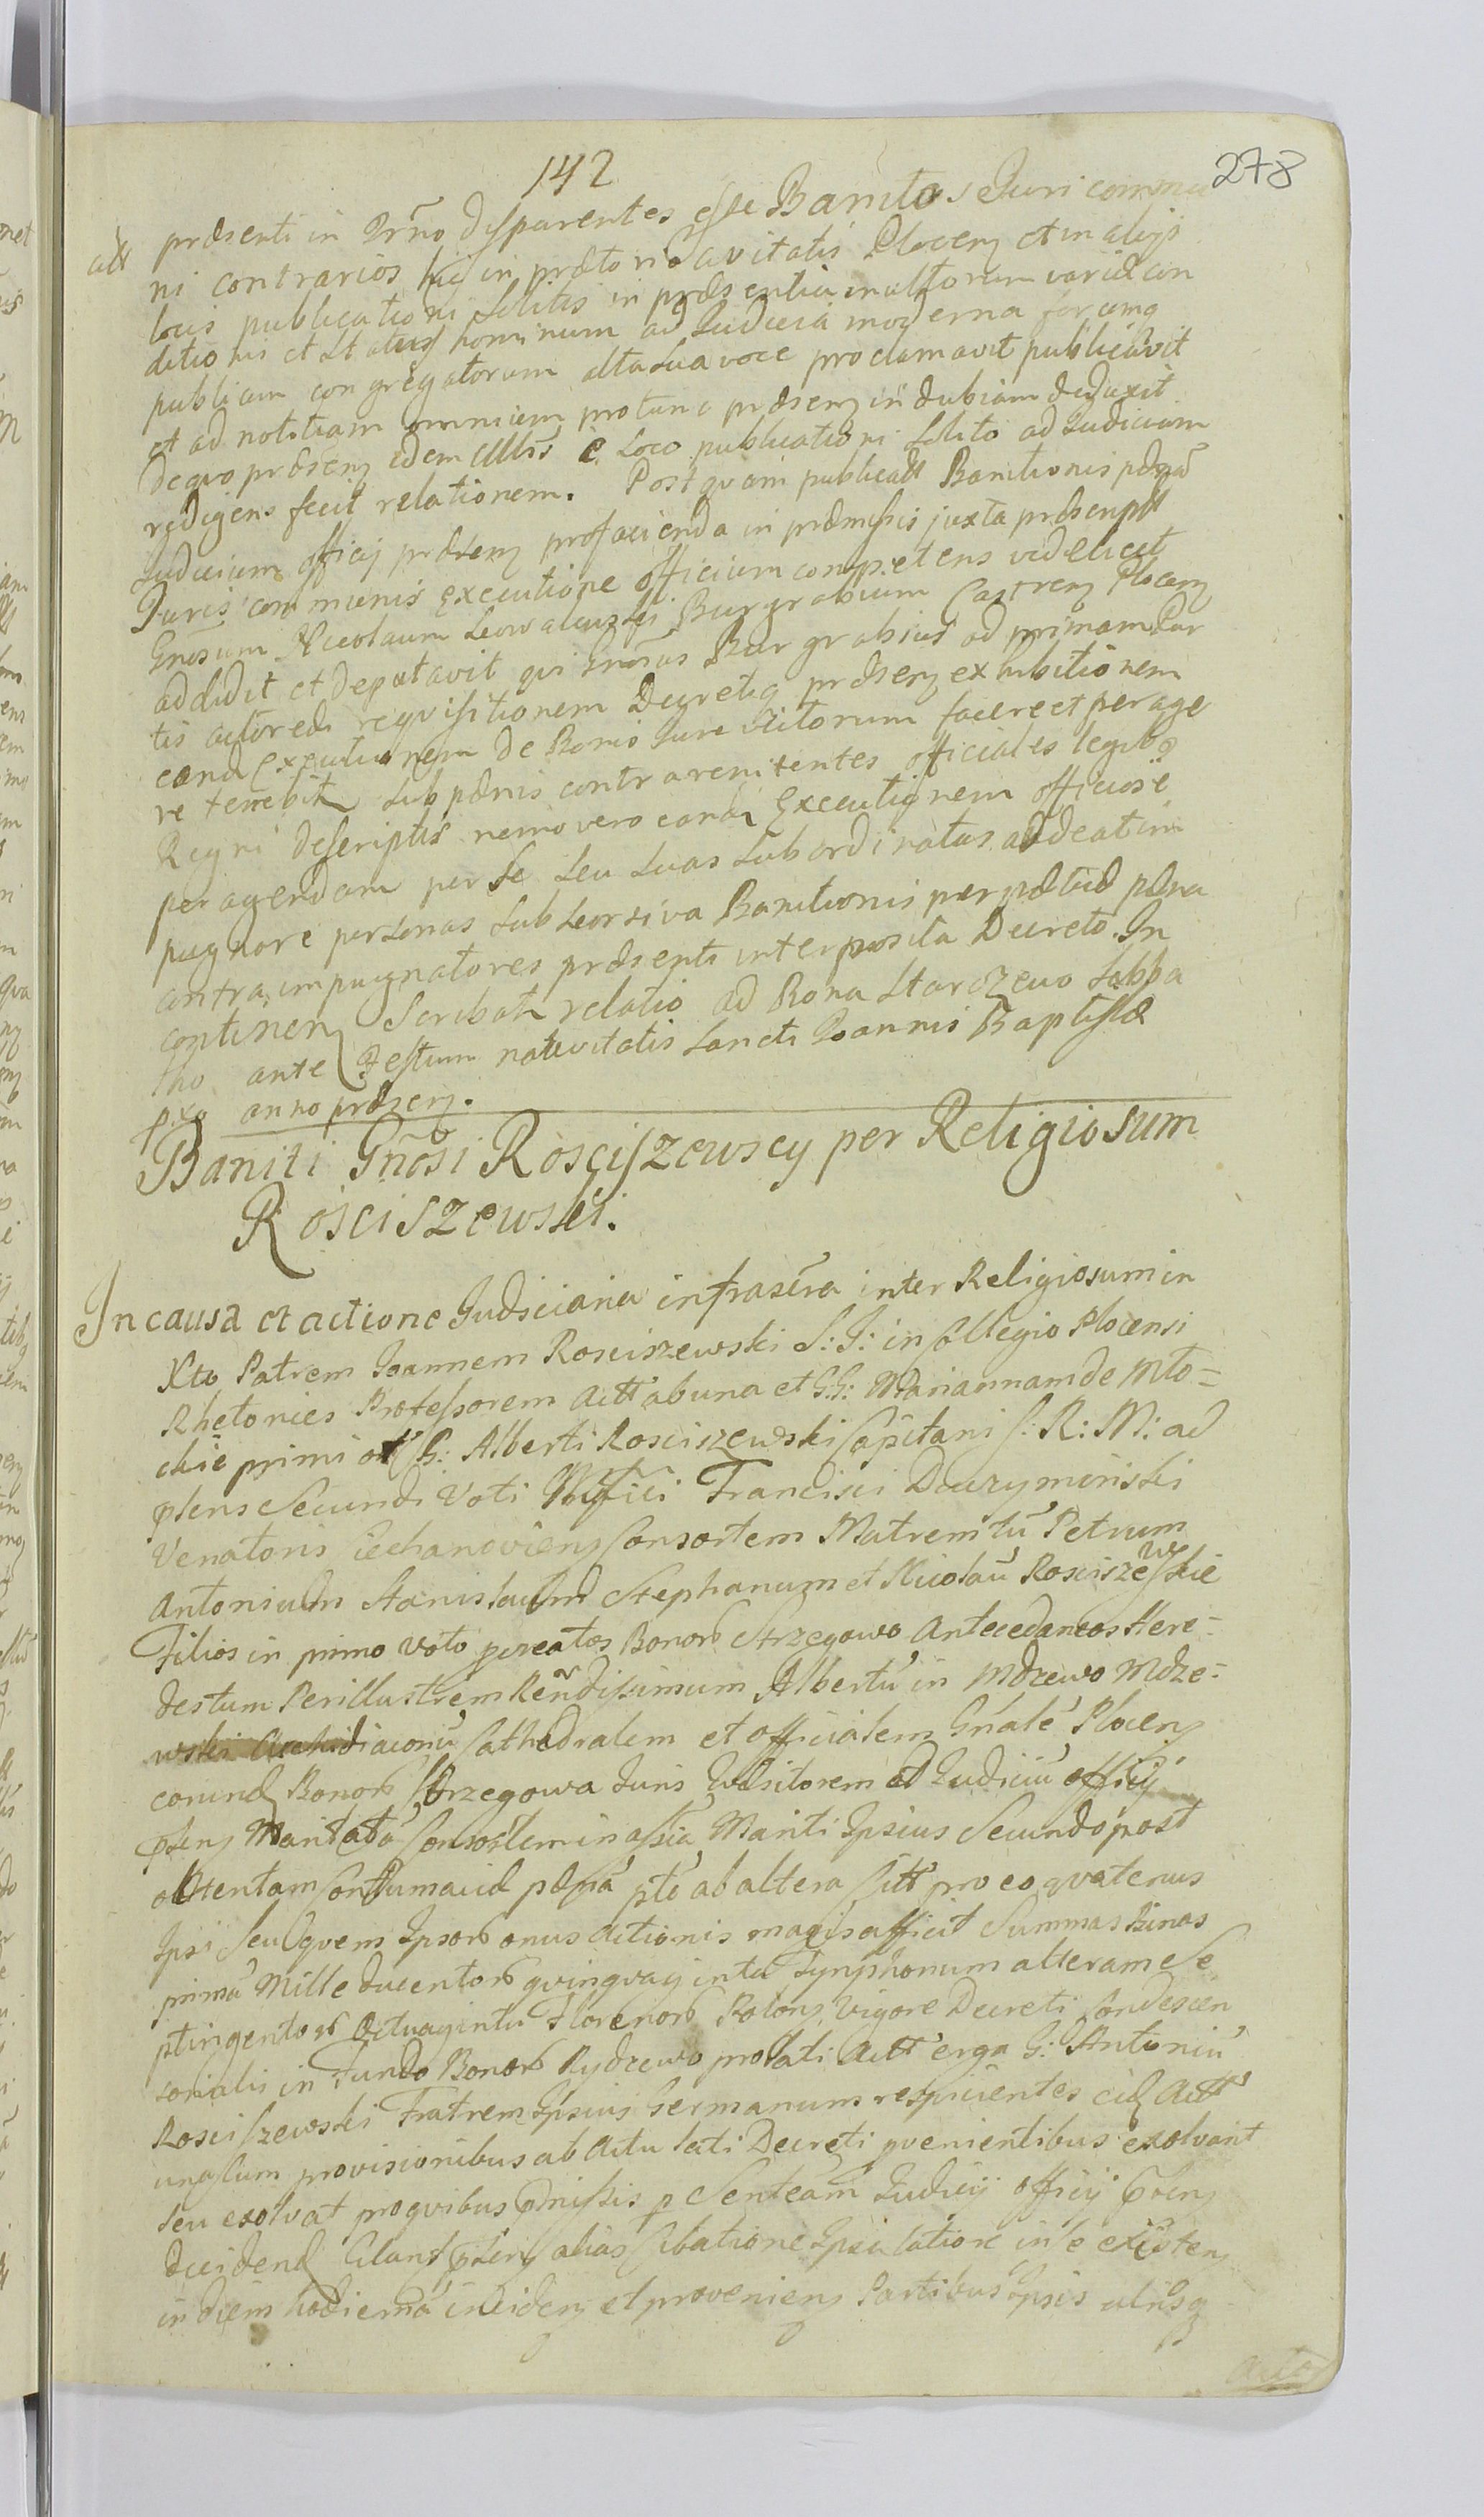 142
278
præsenti in Trño disparentes esse Banitos Juri commu
ni contrarios hic in prætorio civitatis Plocen et in alijs
locis publicationi solitis in præsentia multorum variæ con
ditionis et status hominum ad Judicia moderna forumq
publicum congregatorum alta sua voce proclamavit publicavit
et ad notitiam omnium protunc præsen indubiam deduxit
de quo præsen idem Mlñs è loco publicationi solito ad Judicium
redigens fecit relationem. Post quam publicatt Banitionis pænã
Judicium officij præsen pro facienda in præmissis juxta præscript
Juris communis executione officium competens videlicet
Gnosum Nicolaum Burgrabium Castren Plocen
addidit et deputavit qui Gnosus Burgrabius ad primam Par
tis actoreæ requisitionem Decretiq præsen exhibitionem
eand executionem de Bonis Jure victorum facere et perage
re tenebit sub pænis contra renitentes officiales legibq
Regni descriptis nemo vero eand Executionem officiose
peragendam per se seu suas subordinatas audeat im
pugnare personas sub seorsiva Banitionis perpetuæ pæna
contra impugnatores præsenti interposita Decreto. In
continen Scribat relatio ad Bona Starozewo Sabba
tho ante Festum nativitatis Sancti Joannis Baptistæ
pxo anno præsen.
Baniti Gñosi Rosciszewscy per Religiosum
Rosciszewski.
In causa et actione Judiciaria infrascra inter Religiosum in
Xto Patrem Joannem Rosciszewski S: J: in Collegio Plocensi
Rhetorices Professorem Actt ab una et G.G: Mariannam de Mło=
ckie primi G: Alberti Rosciszewski Capitani S: R: M: ad
plens Secundi Voti Mfici Francisci Duczyminski
Venatoris Ciechanovien Consortem Matrem tũ Petrum
Antonium Stanislaum Stephanum et Nicolaũ Rosciszewskie
Filios in primo voto pcreatos Bonor Strzegowo Antecedaneos Here=
des tum Perillustrem Rendissimum Albertũ in Mdzewo Mdze=
wski Archidiaconũ Cathedralem et officialem Gñalé Plocen
eorund Bonor Strzegowa Juris Quesitorem ad Judiciũ officij
psens Maritatã Consortem in assiã Mariti Ipsius Secundo post
obtentam Contumaciæ pænã pte ab altera Citt pro eo quatenus
Ipsi Seu quem Ipsor onus actionis magis afficit Summas Binas
primã Mille ducentor quinquaginta Symphonum alteram Se
ptingentor Octuaginta Florenor Polon Vigore Decreti Condescen
sorialis in Fundo Bonor Rydzewo prolati Actt erga G: Antoniũ
Rosciszewski Fratrem Ipsius Germanum respicientes eid Actt
una cum provisionibus ab actu lati Decreti pvenientibus exolvant
seu exolvat pro quibus pmissis p Senteam Judicij officij psen
decidend alias Citatione Ipsis latiore in se existen
in diem hodiernã inciden et provenien Partibus Ipsis utrisq